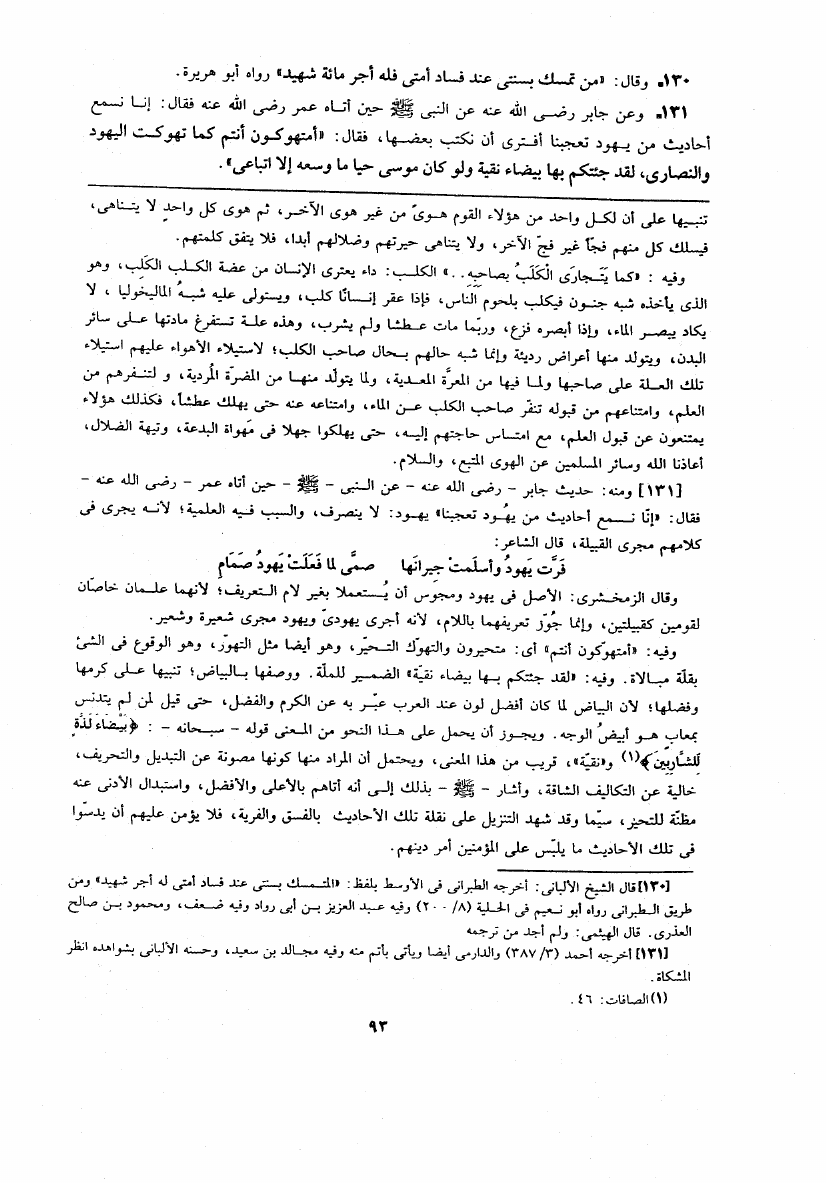 ١٣٠ـ وقال: «من تمسك بسنتى عند فساد أمتى فله أجر مائة شهيد» رواه أبو هريرة.
١٣١ـ وعن جابر رضى الله عنه عن النبى ﷺ حين أتاه عمر رضى الله عنه فقال: إنا نسمع
أحاديث من يهود تعجبنا أفترى أن نكتب بعضها، فقال: «أمتهوكون أنتم كما تهوكت اليهود
والنصارى، لقد جئتكم بها بيضاء نقية ولو كان موسى حيا ما وسعه إلا اتباعى».
تنبيها على أن لكل واحد من هؤلاء القوم هوىً من غير هوى الآخر، ثم هوى كل واحدٍ لا يتناهى،
فيسلك كل منهم فجّاً غير فجّ الآخر، ولا يتناهى حيرتهم وضلالهم أبدا، فلا يتفق كلمتهم.
وفيه : «كما يتَجارَى الْكَلَبُ بصاحِبِه..» الكلب: داء يعترى الإنسان من عضة الكلب الكَلِب، وهو
الذى يأخذه شبه جنون فيكلب بلحوم الناس، فإذا عقر إنسانًا كلب، ويستولى عليه شبهُ الماليخوليا ، لا
يكاد يبصر الماء، وإذا أبصره فزع، وربّما مات عطشا ولم يشرب، وهذه علة تستفرغ مادتها على سائر
البدن، ويتولد منها أعراض رديئة وإنما شبه حالهم بحال صاحب الكلب؛ لاستيلاء الأهواء عليهم استيلاء
تلك العلة على صاحبها ولما فيها من المعرَّة المعدية، ولما يتولّد منها من المضرّة المُردية، و لتنفرهم من
العلم، وامتناعهم من قبوله تنفّر صاحب الكلب عن الماء، وامتناعه عنه حتى يهلك عطشاً، فكذلك هؤلاء
يمتنعون عن قبول العلم، مع امتساس حاجتهم إليه، حتى يهلكوا جهلا فى مَهواة البدعة، وتيهة الضلال،
أعاذنا الله وسائر المسلمين عن الهوى المتبع، والسلام.
[١٣١] ومنه: حديث جابر – رضى الله عنه – عن النبى – ﷺ – حين أتاه عمر – رضى الله عنه –
فقال: «إنّا نسمع أحاديث من يهُود تعجبنا» يهود: لا ينصرف، والسبب فيه العلمية؛ لأنه يجرى فى
كلامهم مجرى القبيلة، قال الشاعر:
فَرَّت يَهودُ وأسلَمتْ جِيرانَها صمَّى لما فَعَلَتْ يَهودُ صَمَامِ
وقال الزمخشرى: الأصل فى يهود ومجوس أن يُستعملا بغير لام التعريف؛ لأنهما علمان خاصّان
لقومين كقبيلتين، وإنما جُوّز تعريفهما باللام، لأنه أجرى يهودىّ ويهود مجرى شعيرة وشعير.
وفيه: «أمتهوكون أنتم» أى: متحيرون والتهوّك التحيّر، وهو أيضا مثل التهوّر، وهو الوقوع فى الشئ
بقلّة مبالاة. وفيه: «لقد جئتكم بها بيضاء نقيّة» الضمير للملّة. ووصفها بالبياض؛ تنبيها على كرمها
وفضلها؛ لأن البياض لما كان أفضل لون عند العرب عبّر به عن الكرم والفضل، حتى قيل لمن لم يتدنس
بمعابٍ هو أبيضُ الوجه. ويجوز أن يحمل على هذا النحو من المعنى قوله – سبحانه – : ﴿بَيْضَاءَ لَذَّةٍ
لِلشَّارِبِينَ﴾(١) و«نقيّة»، قريب من هذا المعنى، ويحتمل أن المراد منها كونها مصونة عن التبديل والتحريف،
خالية عن التكاليف الشاقة، وأشار – ﷺ – بذلك إلى أنه أتاهم بالأعلى والأفضل، واستبدال الأدنى عنه
مظنّة للتحيز، سيّما وقد شهد التنزيل على نقلة تلك الأحاديث بالفسق والفرية، فلا يؤمن عليهم أن يدسّوا
فى تلك الأحاديث ما يلبّس على المؤمنين أمر دينهم.
[١٣٠]قال الشيخ الألبانى: أخرجه الطبرانى فى الأوسط بلفظ: «المتمسك بسنتى عند فساد أمتى له أجر شهيد» ومن
طريق الطبرانى رواه أبو نعيم فى الحلية (٨/ ٢٠٠) وفيه عبد العزيز بن أبى رواد وفيه ضعف، ومحمود بن صالح
العذرى. قال الهيثمى: ولم أجد من ترجمه
[١٣١] أخرجه أحمد (٣/ ٣٨٧) والدارمى أيضا ويأتى بأتم منه وفيه مجالد بن سعيد، وحسنه الألبانى بشواهده انظر
المشكاة.
(١) الصافات: ٤٦.
٩٣